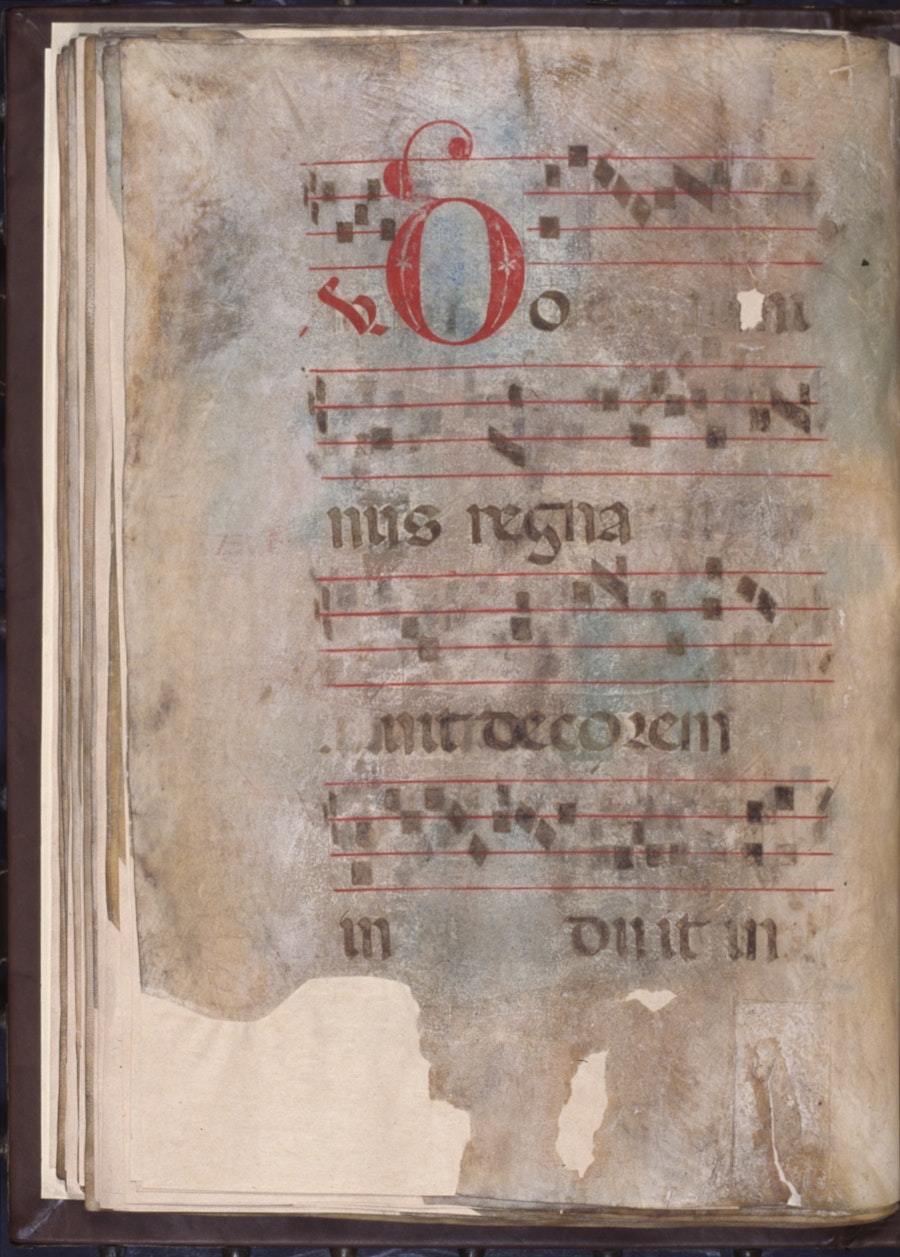 ℣ Do m
nus regna
uit decorem
in duit in